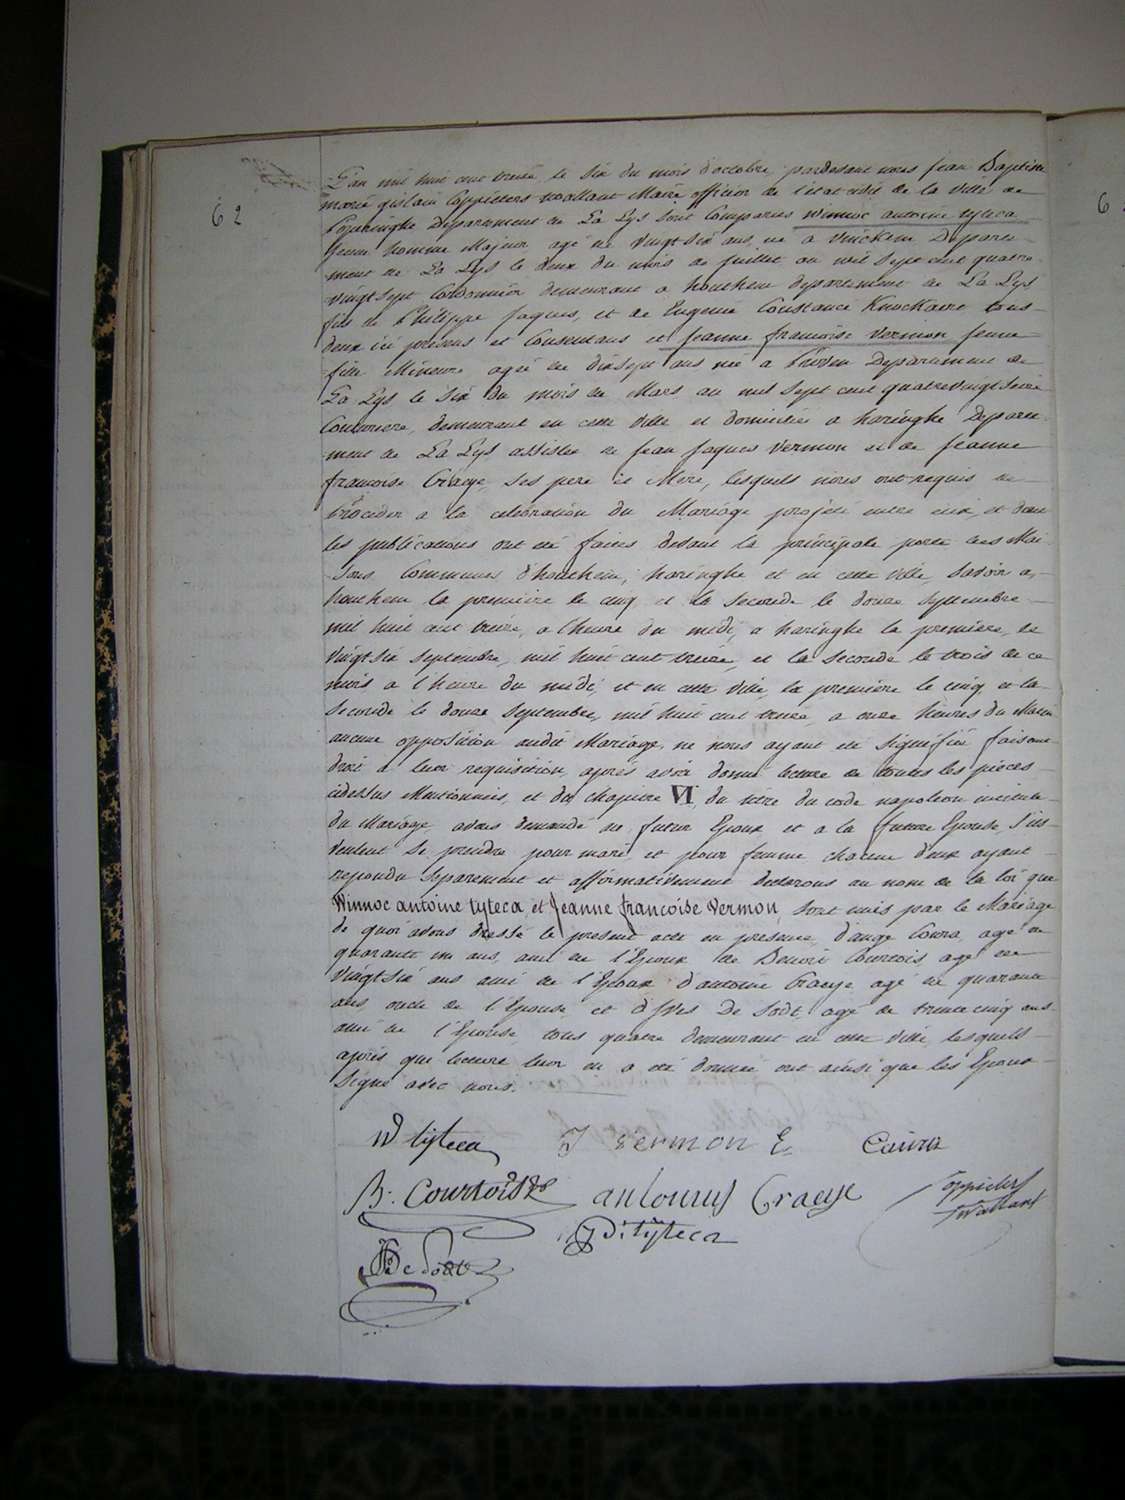 62
L'an mil huit cent treize, le six du mois d'octobre, pardevant nous Jean Baptiste
marie gislain Coppieters wallant Maire officier de l'etat civil de la ville de
Poperinghe Departement de La Lys sont Comparus winnoc antoine tyteca
Jeune homme Majeur agé de vingtsix ans, né a vinckem Departe-
ment de La Lys le deux du mois de Juillet an mil sept cent quatre
vingt sept Cordonnier demeurant a houthem departement de La Lys
fils de Philippe Jaques, et de Eugenie Constance Knockaert tous
deux ici presens et Consentans et Jeanne francoise vermon Jeune
fille Mineure agée de dixsept ans née a Proven Departement de
La Lys le six du mois de Mars an mil sept cent quatrevingt seize
Couturiere, demeurant en cette ville et domiciliée a haringhe Departe-
ment de La Lys assistée de Jean Jaques vermon et de Jeanne
francoise Craeye, ses pere et Mere, lesquels nous ont requis de
Proceder a la celebration du Mariage projeté entre eux, et dont
les publications ont été faites devant la principale porte des Mai-
sons Communes d'houthem, haringhe et en cette ville, savoir a,
houthem la premiere le cinq et la seconde le douze septembre
mil huit cent treize, a l'heure du midi, a haringhe la premiere, le
vingtsix septembre, mil huit cent treize, et la seconde le trois de ce
mois a l'heure du midi, et en cette ville, la premiere le cinq et la
seconde le douze septembre, mil huit cent treize, a onze heures du Matin
aucune opposition audit Mariage, ne nous ayant été signifiée faisant
droit a leur requisition, après avoir donné lecture de toutes les pieces
cidessus Mentionnées, et du chapitre VI, du titre du code napoleon intitulé
du Mariage, avons demandé au futur Epoux et a la future Epouse, s'ils
veulent se prendre pour mari, et pour femme chacun d'eux ayant
repondu separement et affirmativement declarons au nom de la loi que
Winnoc antoine tyteca, et Jeanne francoise vermon, sont unis par le Mariage
de quoi avons dressé le present acte en presence, d'ange Coura, agé de
quarante un ans, ami de l'Epoux de Benoit Courtois agé de
vingtsix ans ami de l'Epoux d'antoine Craeye agé de quarante
ans, oncle de l'Epouse et d'Yves De Sodt, agé de trente cinq ans
ami de l'Epouse, tous quatre demeurant en cette ville, lesquels
après que lecture leur en a été donnée ont ainsi que les Epoux
signé avec nous.
W tyteca J vermon E Coura
B. Courtois antonius Craeye Coppieters
Wallant
P J tyteca
De Sodt